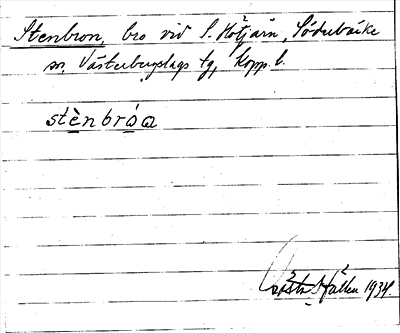 Stenbron, bro vid S. Hötjärn, Söderbärke
sn, Västerbergslags tg, Kopp. l.
stènbróa
1934.